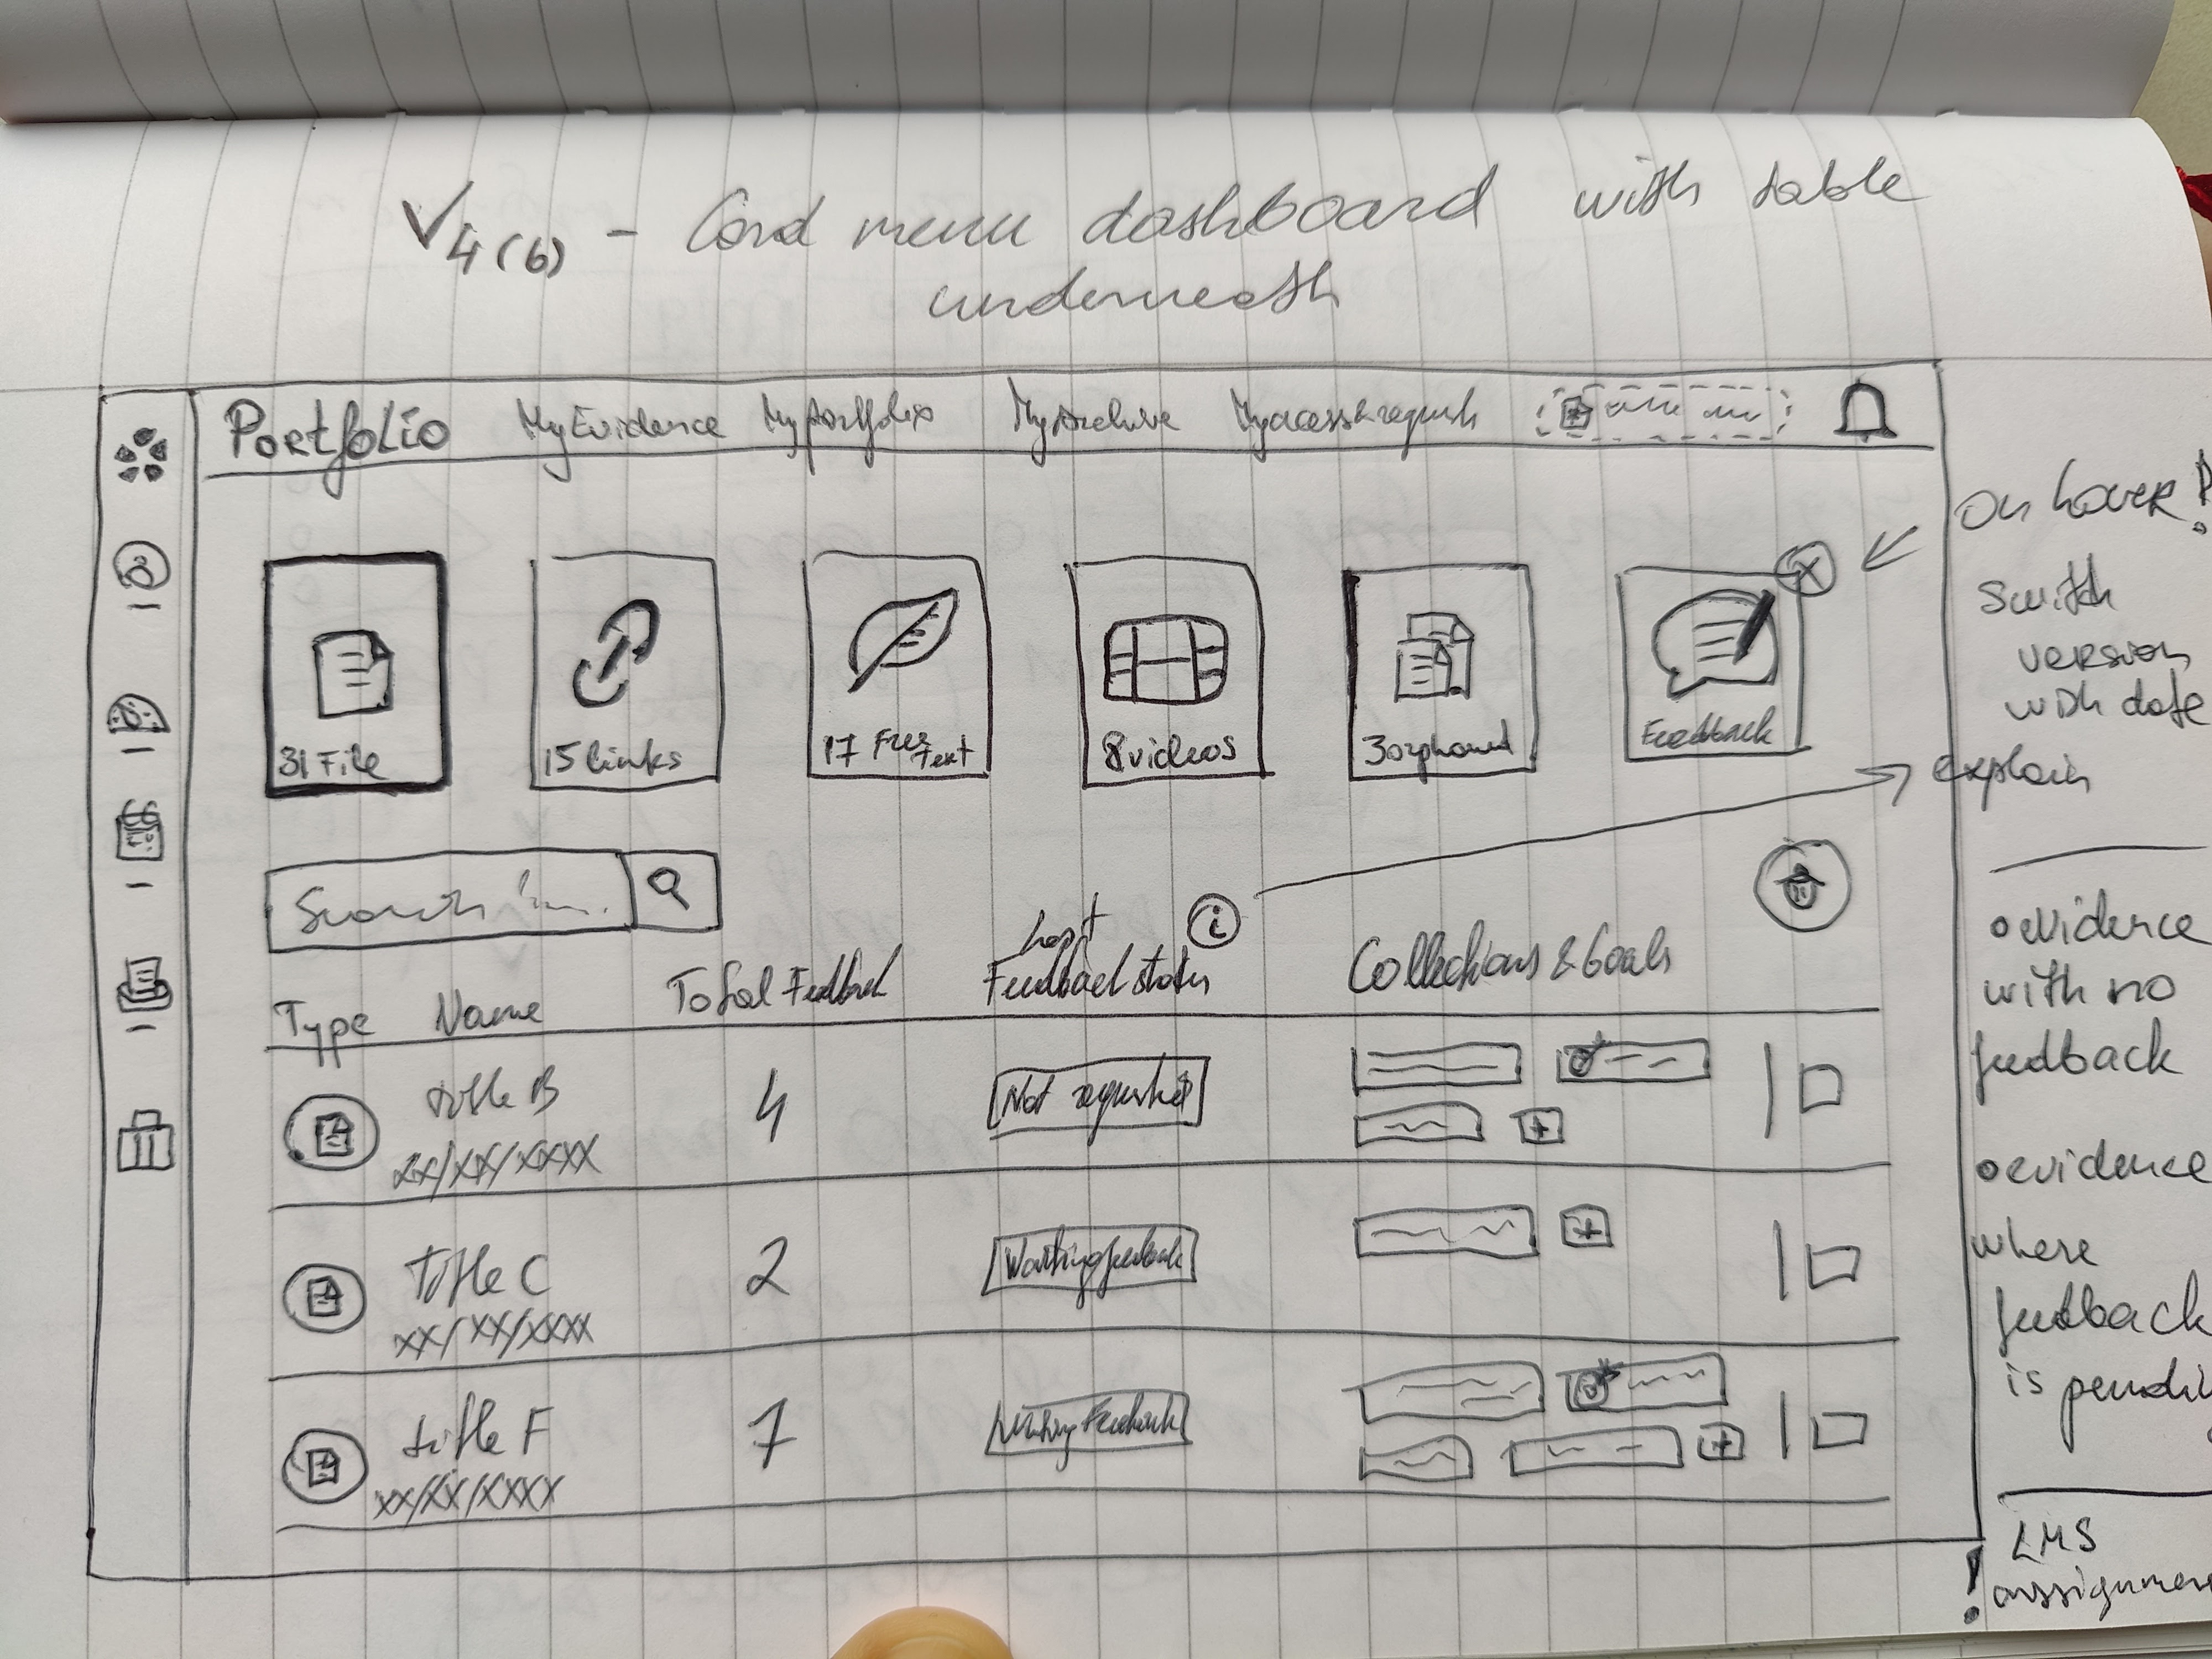 V4(b) - Card menu dashboard with table
underneath
Portfolio My Evidence My portfolio My Archive My access & requests
31 File
15 links
17 Free Text
8 videos
3 orphaned
Feedback
On hover!
Switch
version
with date
explain
Search
i
Type Name Total Feedback Last Feedback status Collections & Goals
title B 4 Not requested
xx/xx/xxxx
Title C 2 Waiting feedback
xx/xx/xxxx
title F 7 Waiting Feedback
xx/xx/xxxx
o evidence
with no
feedback
o evidence
where
feedback
is
LMS
!